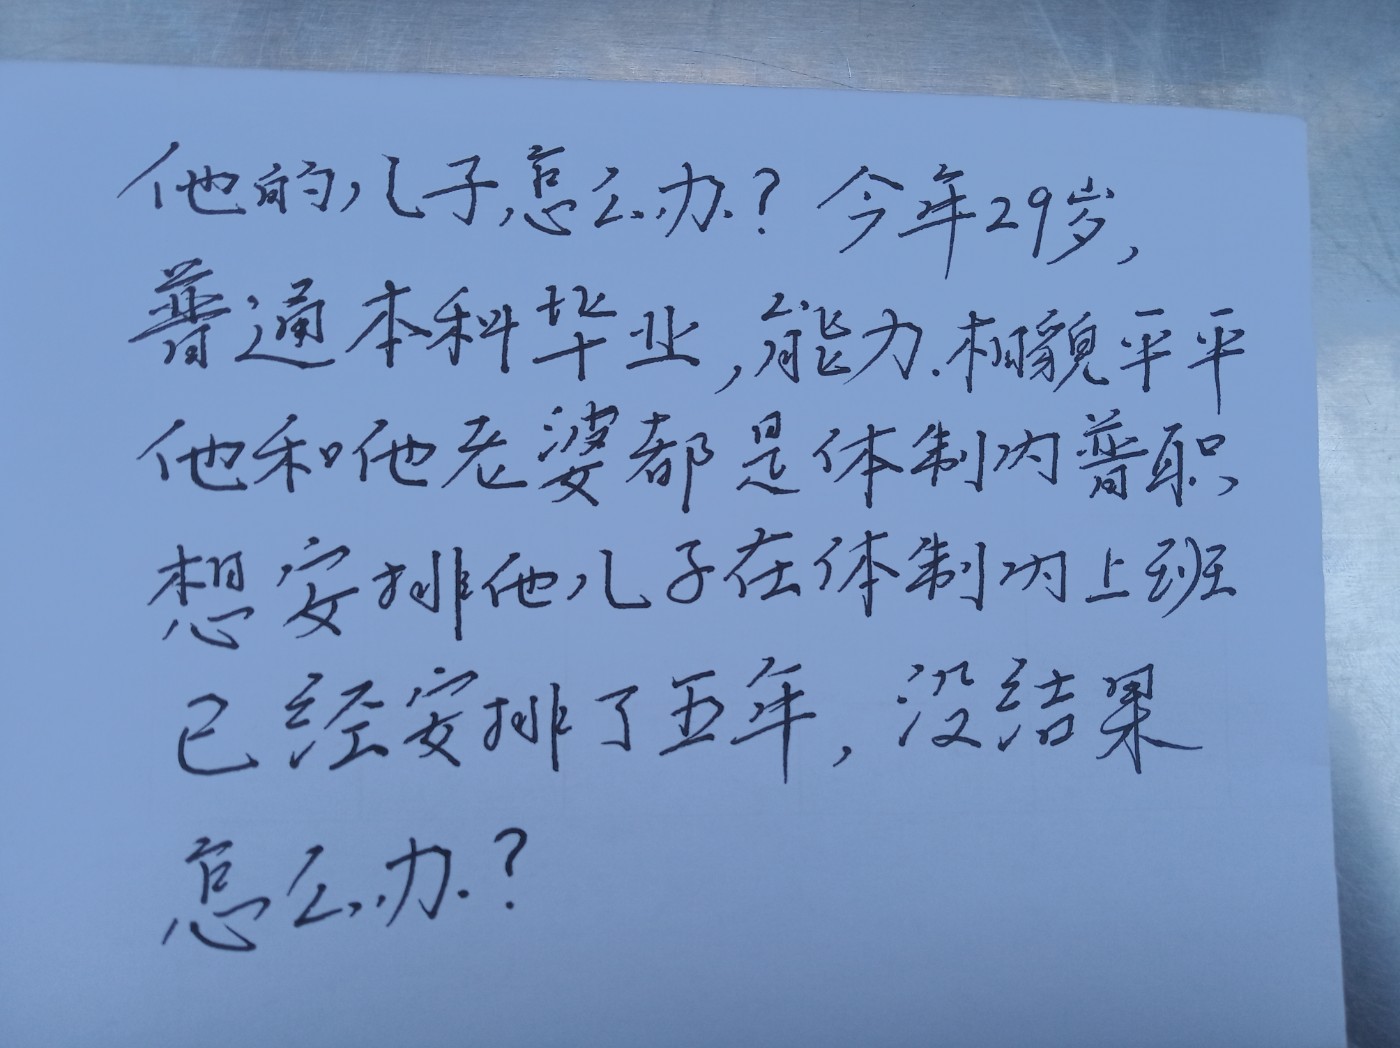 他的儿子怎么办？今年29岁，
普通本科毕业，能力.相貌平平
他和他老婆都是体制内普职，
想安排他儿子在体制内上班
已经安排了五年，没结果
怎么办？